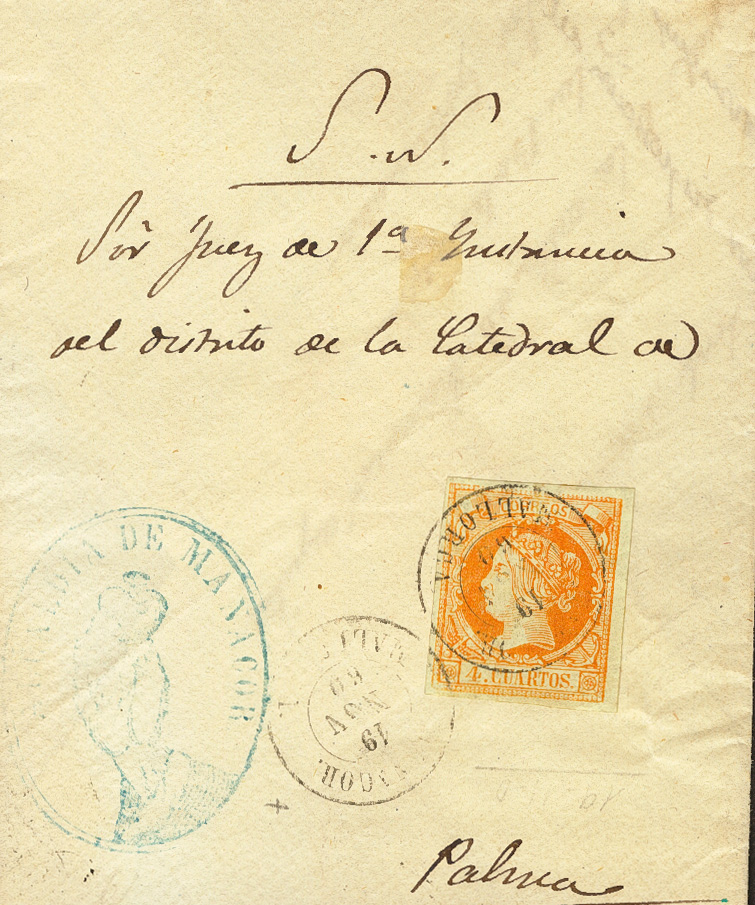 S. N.
Sor Juez de 1ª Instancia
del distrito de la Catedral de
CORREOS
4. CUARTOS.
DE MANACOR
19
NOV
60
Palma